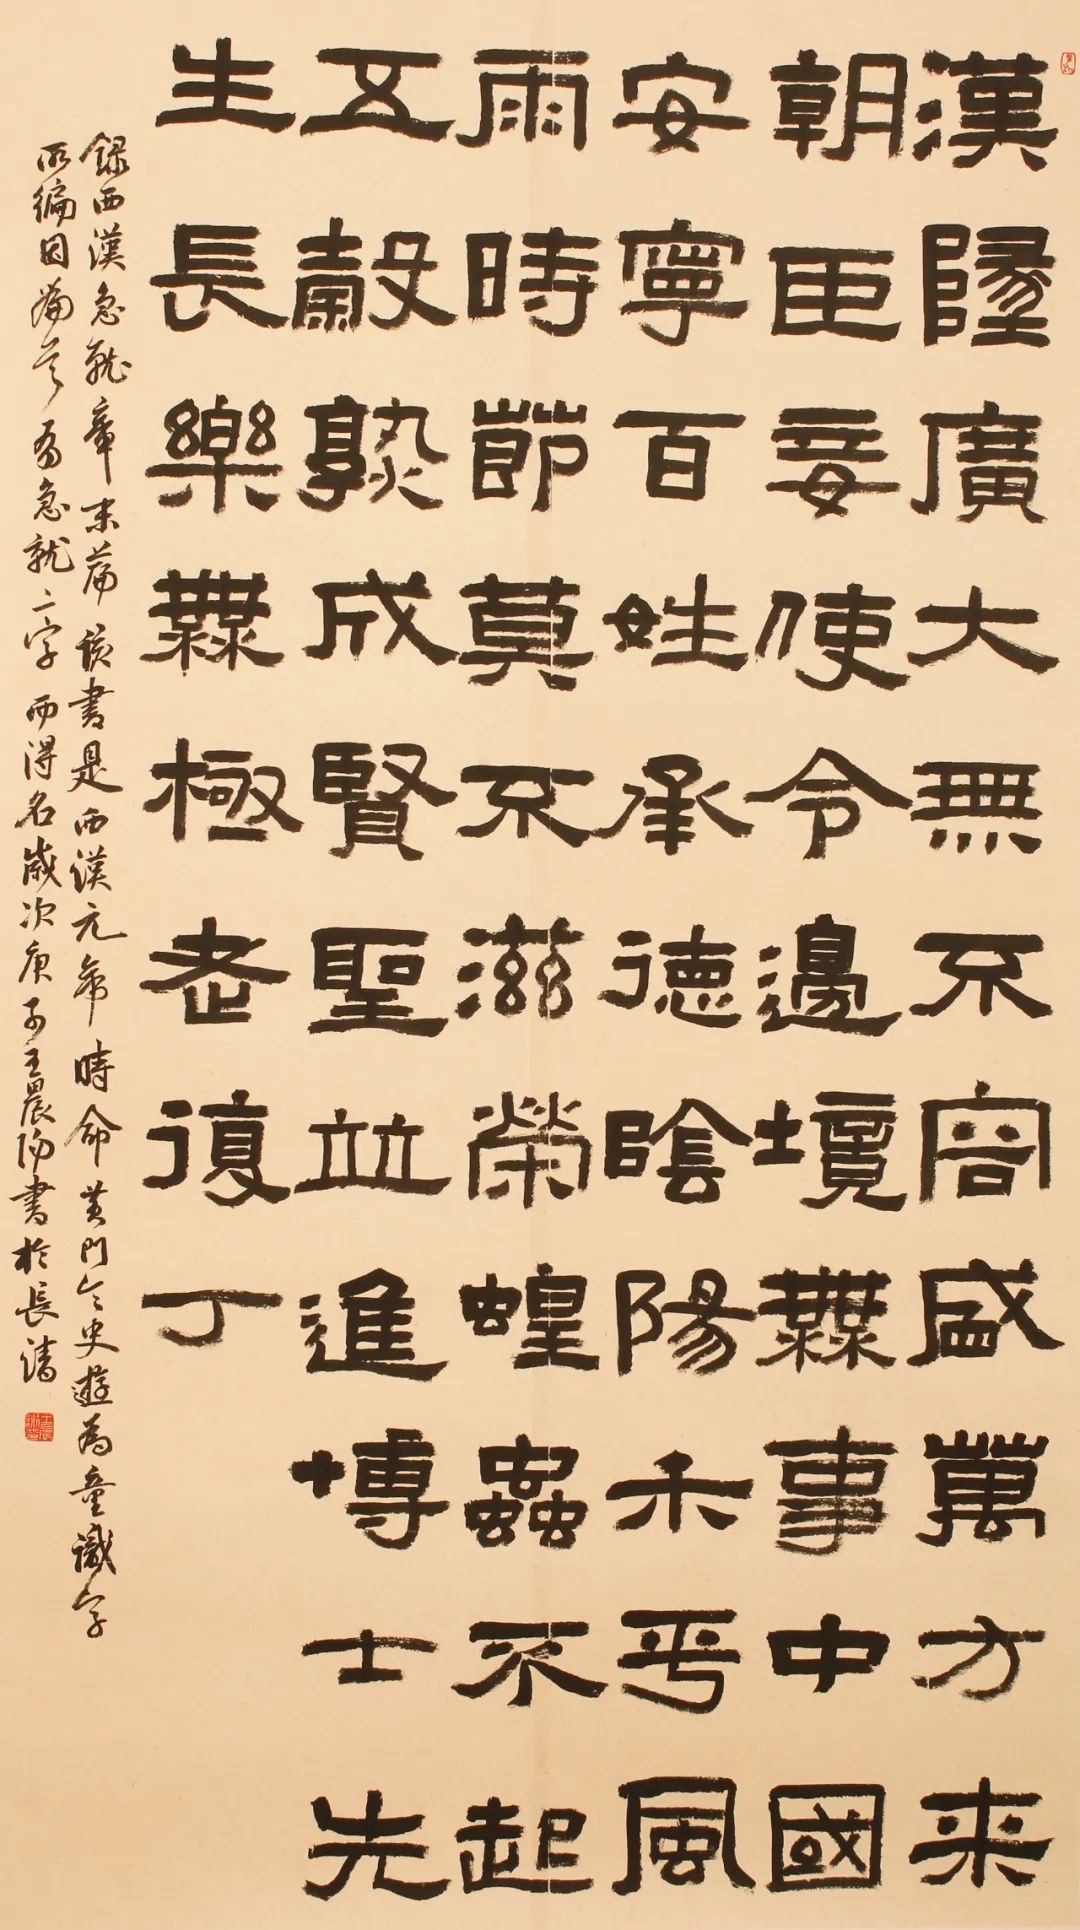 漢墬廣大無不容盛萬方来
朝臣妾使令邊境無事中國
安寧百姓承德陰陽禾平風
雨時節莫不滋榮蝗蟲不起
五穀孰成賢聖並進博士先
生長樂無極老復丁
錄西漢急就章末篇該書是西漢元帝時命黃門令史遊為童識字
所編因篇首有急就二字而得名歲次庚子王晨陽書於長清